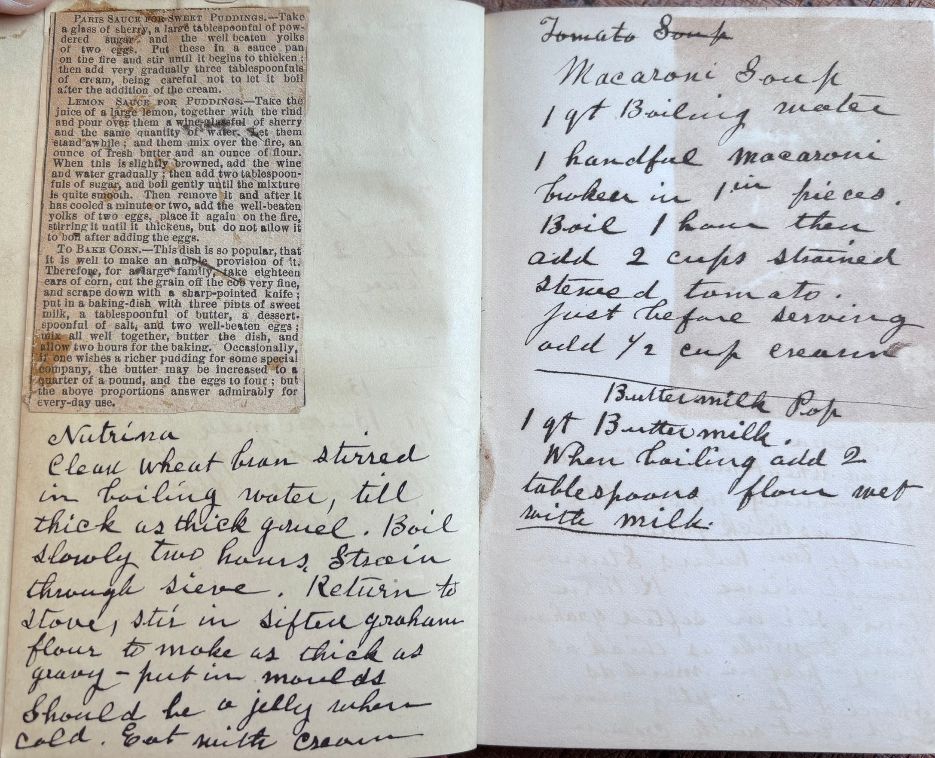 PARIS SAUCE FOR SWEET PUDDINGS.—Take
a glass of sherry, a large tablespoonful of pow-
dered sugar and the well beaten yolks
of two eggs. Put these in a sauce pan
on the fire and stir until it begins to thicken;
then add very gradually three tablespoonfuls
of cream, being careful not to let it boil
after the addition of the cream.
LEMON SAUCE FOR PUDDINGS.—Take the
juice of a large lemon, together with the rind
and pour over them a wine-glassful of sherry
and the same quantity of water. Let them
stand awhile; and them mix over the fire, an
ounce of fresh butter and an ounce of flour.
When this is slightly browned, add the wine
and water gradually; then add two tablespoon-
fuls of sugar, and boil gently until the mixture
is quite smooth. Then remove it and after it
has cooled a minute or two, add the well-beaten
yolks of two eggs, place it again on the fire,
stirring it until it thickens, but do not allow it
to boil after adding the eggs.
TO BAKE CORN.—This dish is so popular, that
it is well to make an ample provision of it.
Therefore, for a large family, take eighteen
ears of corn, cut the grain off the cob very fine,
and scrape down with a sharp-pointed knife;
put in a baking-dish with three pints of sweet
milk, a tablespoonful of butter, a dessert-
spoonful of salt, and two well-beaten eggs;
mix all well together, butter the dish, and
allow two hours for the baking. Occasionally,
if one wishes a richer pudding for some special
company, the butter may be increased to a
quarter of a pound, and the eggs to four; but
the above proportions answer admirably for
every-day use.
Nutrina
Clean wheat bran stirred
in boiling water, till
thick as thick gruel. Boil
slowly two hours, Strain
through sieve. Return to
stove, stir in sifted graham
flour to make as thick as
gravy - put in moulds
Should be a jelly when
cold. Eat with cream
Tomato Soup
Macaroni Soup
1 qt Boiling water
1 handful macaroni
broken in 1 in pieces.
Boil 1 hour then
add 2 cups strained
stewed tomato.
Just before serving
add 1/2 cup cream
Buttermilk Pop
1 qt Buttermilk.
When boiling add 2
tablespoons flour wet
with milk.